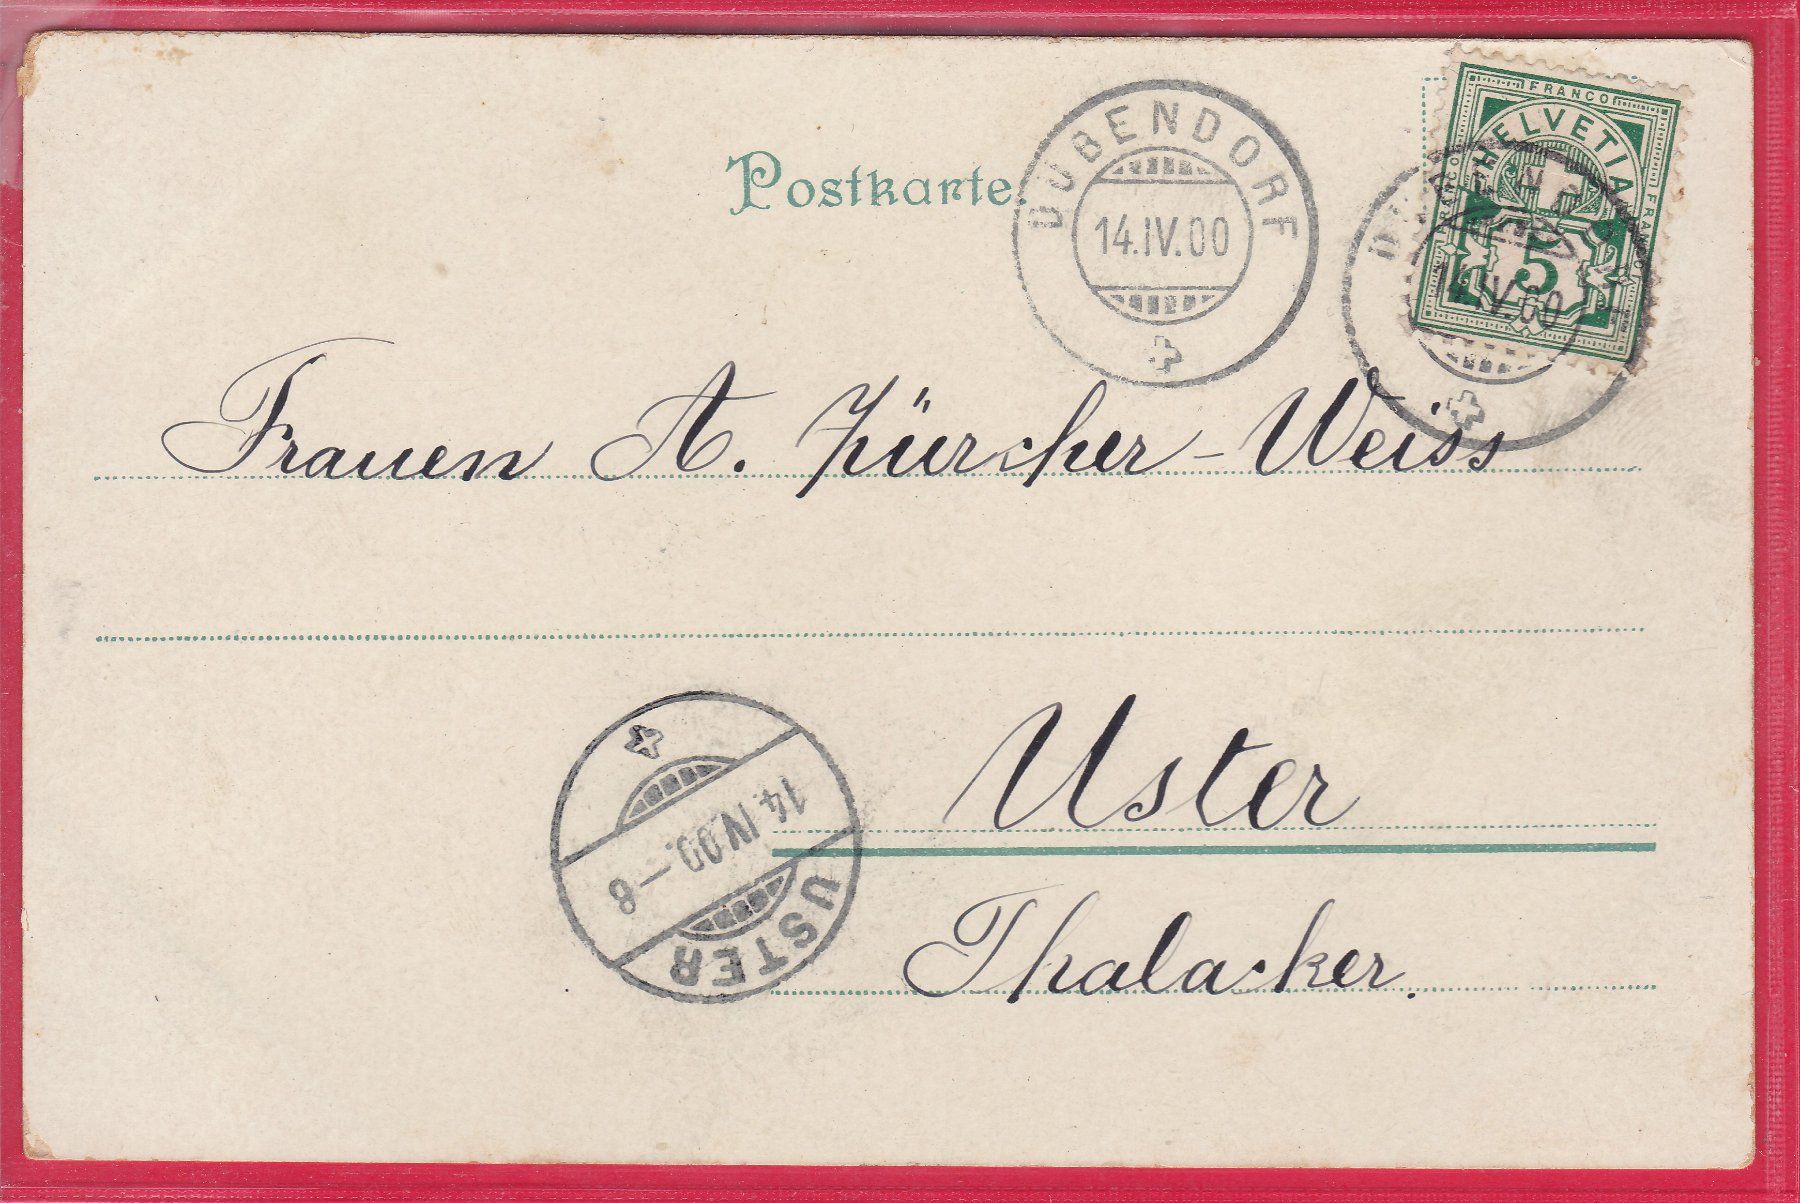 Postkarte.
DÜBENDORF
14.IV.00
FRANCO
FRANCO
FRANCO
HELVETIA
5
14.IV.00
Frauen A. Zürcher-Weiss
Uster
Thalacker.
14.IV.00.–8
USTER